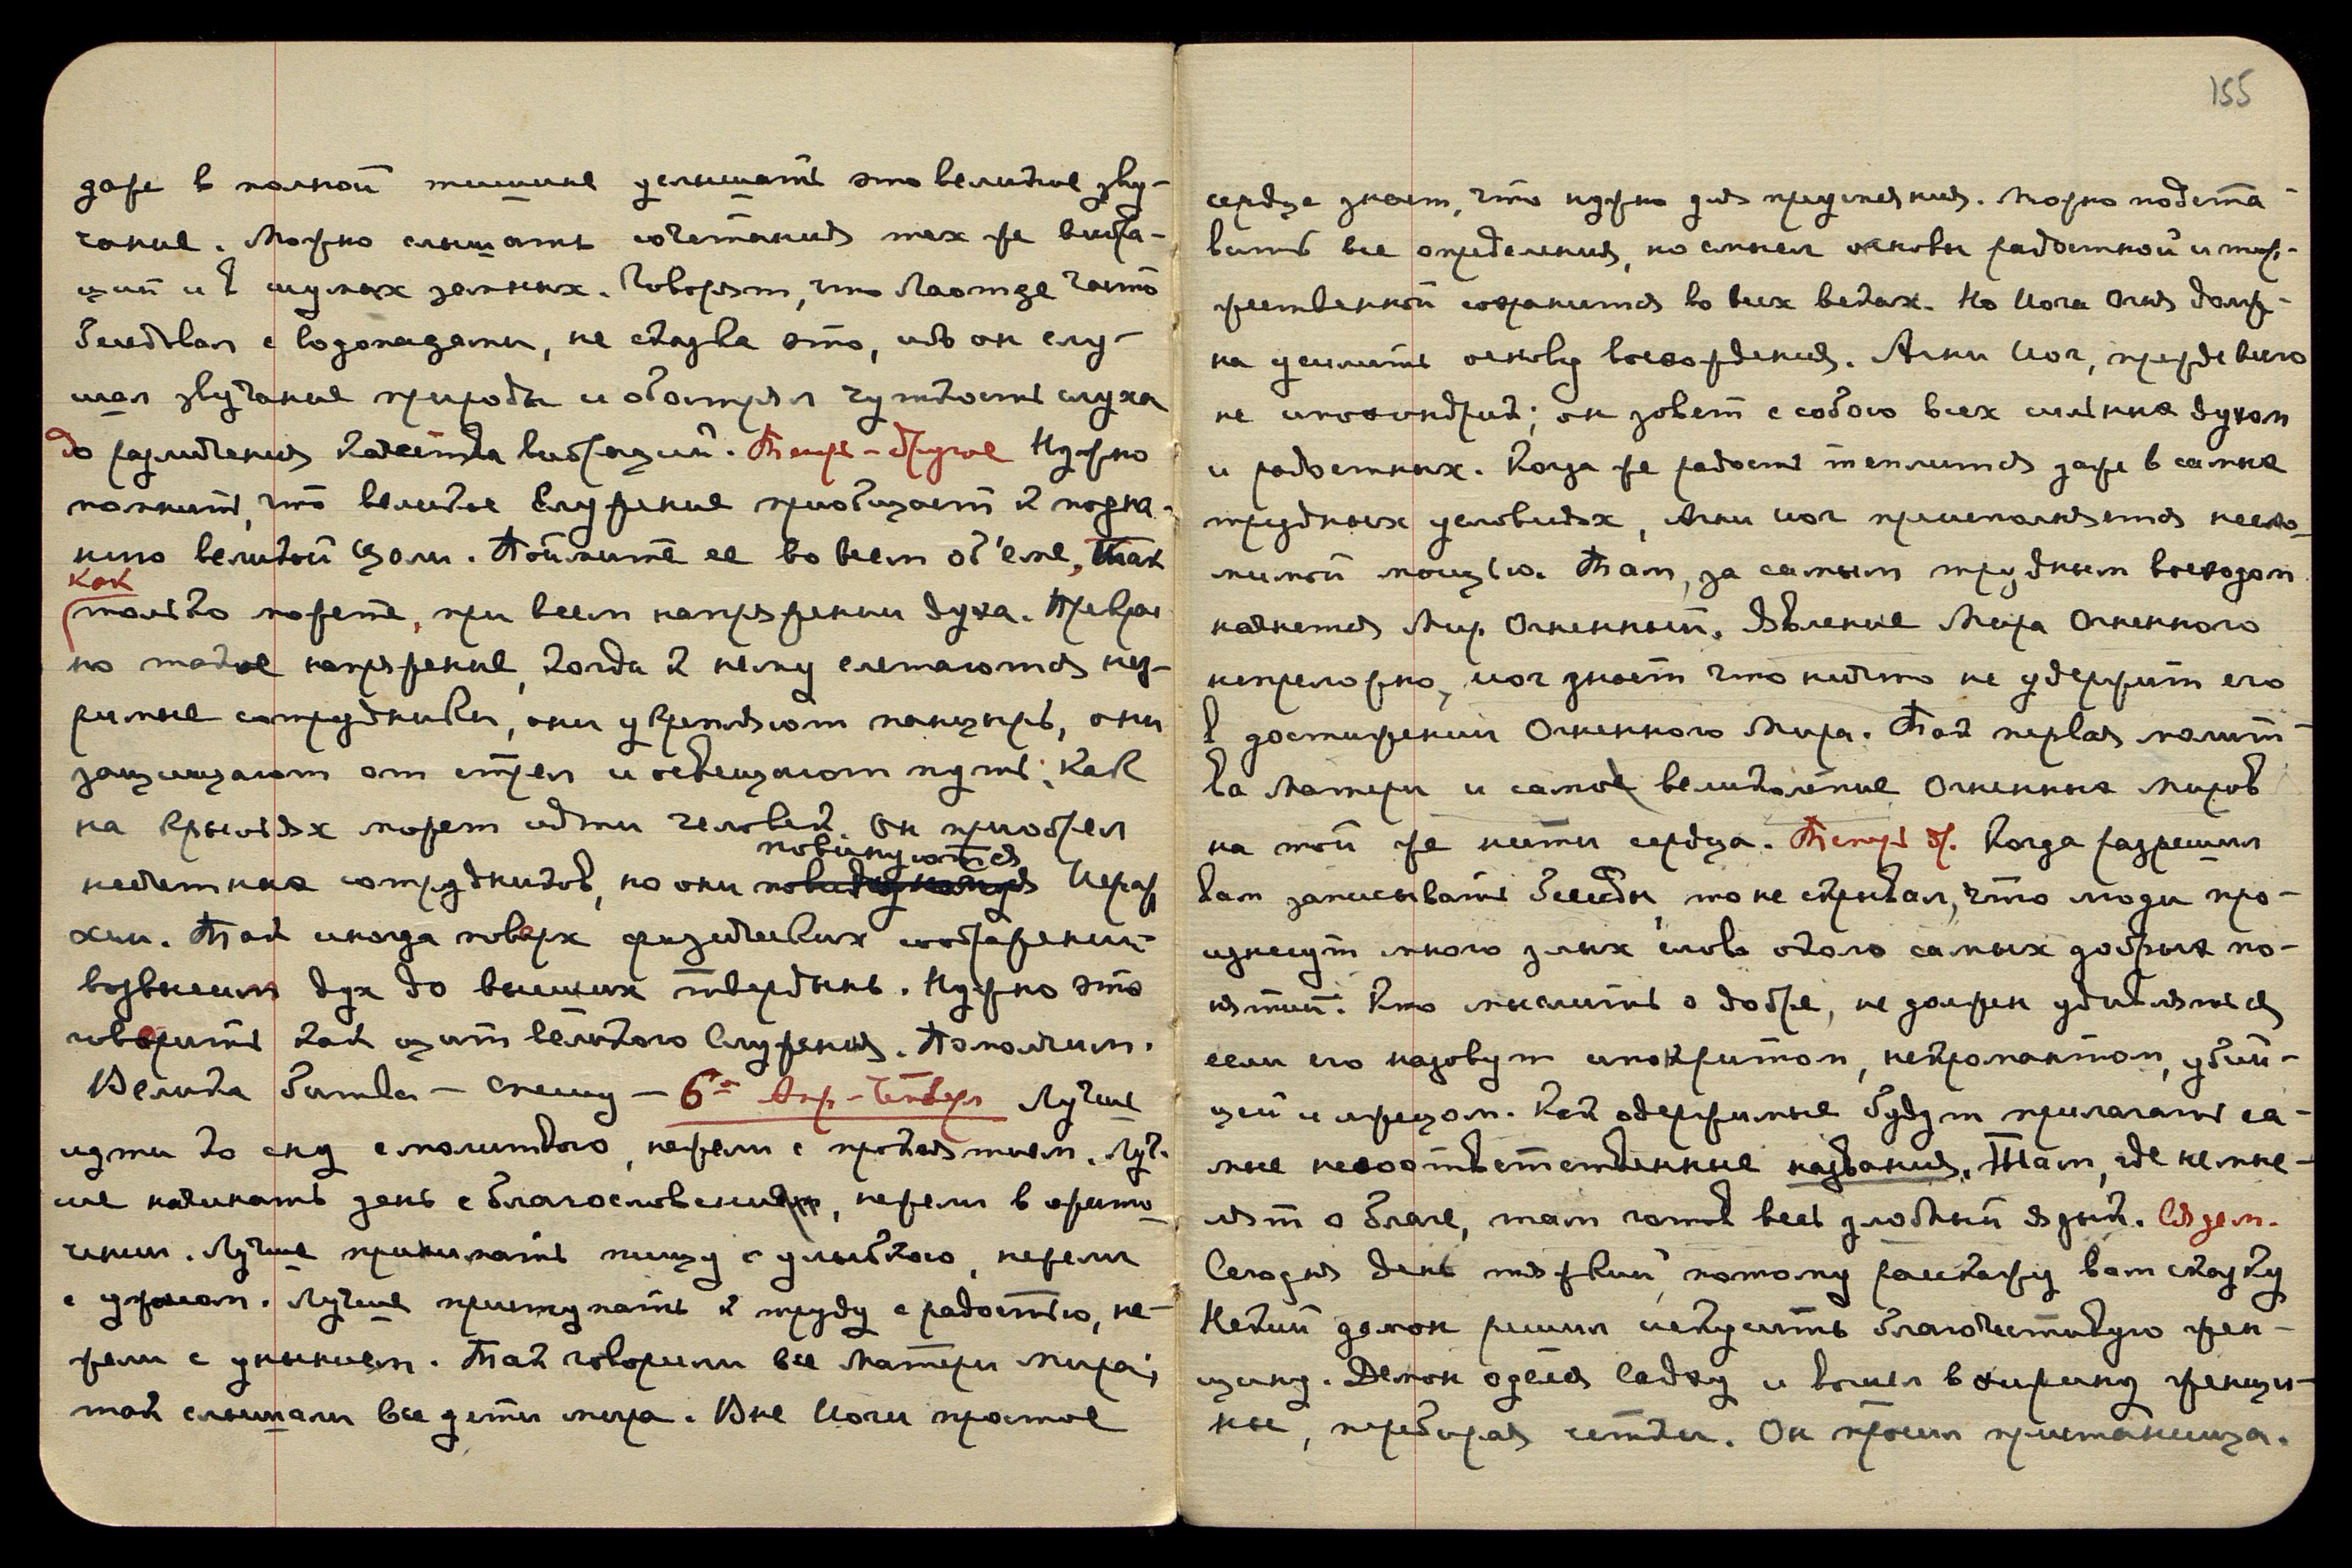 даже в полной тишине услышать это великое зву-
чание. Можно слышать сочетания тех же вибра-
ций и в шумах земных. Говорят, что Лаотзе часто
беседовал с водопадами, не сказка это, ибо он слу-
шал звучание природы и обострял чуткость слуха
до различения качества вибраций. Теперь - другое Нужно
помнить, что великое служение приобщает к позна-
нию великой Цели. Поймите ее во всем об'еме, так
как
только можете, при всем напряжении духа. Прекрас
но такое напряжение, когда к нему слетаются нез-
римые сотрудники, они укрепляют панцырь, они
защищают от стрел и освещают путь; как
на крыльях может идти человек. Он приобрел
повинуются
несчетных сотрудников, но они Иерар
хии. Так иногда поверх физических соображений
возвысим дух до высших твердынь. Нужно это
говорить как щит великого Служения. Помолчим.
Велика битва – спешу – 6-го Апр - Четверг Лучше
идти ко сну с молитвою, нежели с проклятием. Луч-
ше начинать день с благословения, нежели в ожито
чении. Лучше принимать пищу с улыбкою, нежели
с ужасом. Лучше приступать к труду с радостью, не-
жели с унынием. Так говорили все Матери Мира;
так слышали все дети мира. Вне Йоги простое
155
сердце знает, что нужно для преуспеяния. Можно подста-
вить все определения, но смысл основы радостной и тор-
жественной сохранится во всех веках. Но Йога Огня долж-
на усилить основу восхождения. Агни Йог, прежде всего
не ипохондрик; он зовет с собою всех сильных духом
и радостных. Когда же радость теплится даже в самых
трудных условиях, Агни Йог преисполняется несло-
мимой мощью. Там, за самым трудным восходом
начнется Мир Огненный. Явление Мира Огненного
непреложно, йог знает что ничто не удержит его
в достижении Огненного Мира. Так первая молит-
ва Матери и самое великолепие Огненных Миров
на той же нити сердца. Теперь др. Когда разрешил
вам записывать беседы, то не скрывал, что люди про-
изнесут много злых слов около самых добрых по-
нятий. Кто мыслить о добре, не должен удивляться
если его назовут ипокритом, некромантом, убий-
цей и лжецом. Как одержимые будут прилагать са-
мые несоответственные названия. Там, где не мыс-
лят о благе, там готов весь злобный язык. Сядем.
Сегодня день тяжкий, потому расскажу вам сказку
Некий демон решил искусить благочестивую жен-
щину. Демон оделся садху и вошел в хижину женщи-
ны, перебирая четки. Он просил пристанища.